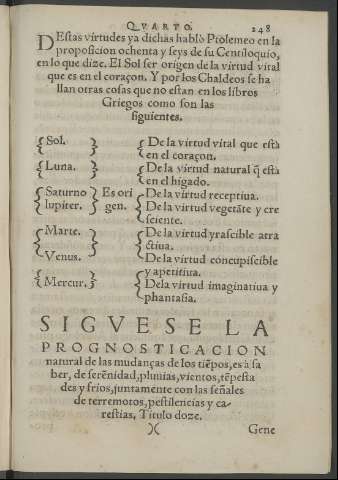 QVARTO. 248
DEstas virtudes ya dichas hablò Ptolemeo en la
proposicion ochenta y seys de su Centiloquio,
en lo que dize. El Sol ser origen de la virtud vital
que es en el coraçon. Y por los Chaldeos se ha
llan otras cosas que no estan en los libros
Griegos como son las
siguientes.
Sol. De la virtud vital que està
en el coraçon.
Luna. De la virtud natural q̃ està
en el higado.
Saturno Es ori De la virtud receptiua.
Iupiter. gen. De la virtud vegetãte y cre
sciente.
Marte. De la virtud yrascible atra
ctiua.
Venus. De la virtud concupiscible
y apetitiua.
Mercur. Dela virtud imaginatiua y
phantasia.
SIGVESE LA
PROGNOSTICACION
natural de las mudanças de los tiẽpos, es à sa
ber, de serẽnidad, pluuias, vientos, tẽpesta
des y frios, juntamente con las señales
de terremotos, pestilencias y ca-
restias, Titulo doze.
)( Gene